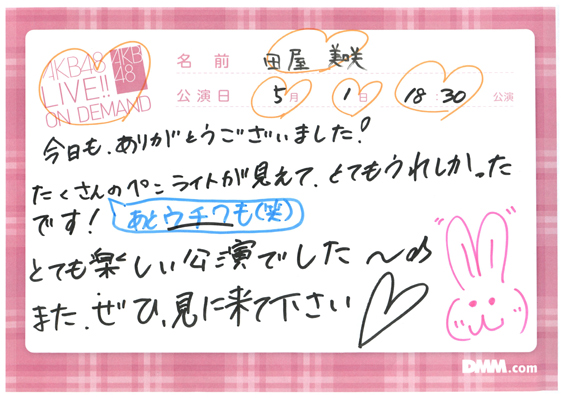 AKB48
LIVE!!
ON DEMAND
AKB
48
名前 田屋 美咲
公演日 5月 1日 18:30 公演
今日も、ありがとうございました!
たくさんのペンライトが見えて、とてもうれしかった
です! あとウチワも(笑)
とても楽しい公演でした〜♪
また、ぜひ、見に来て下さい♡
DMM.com